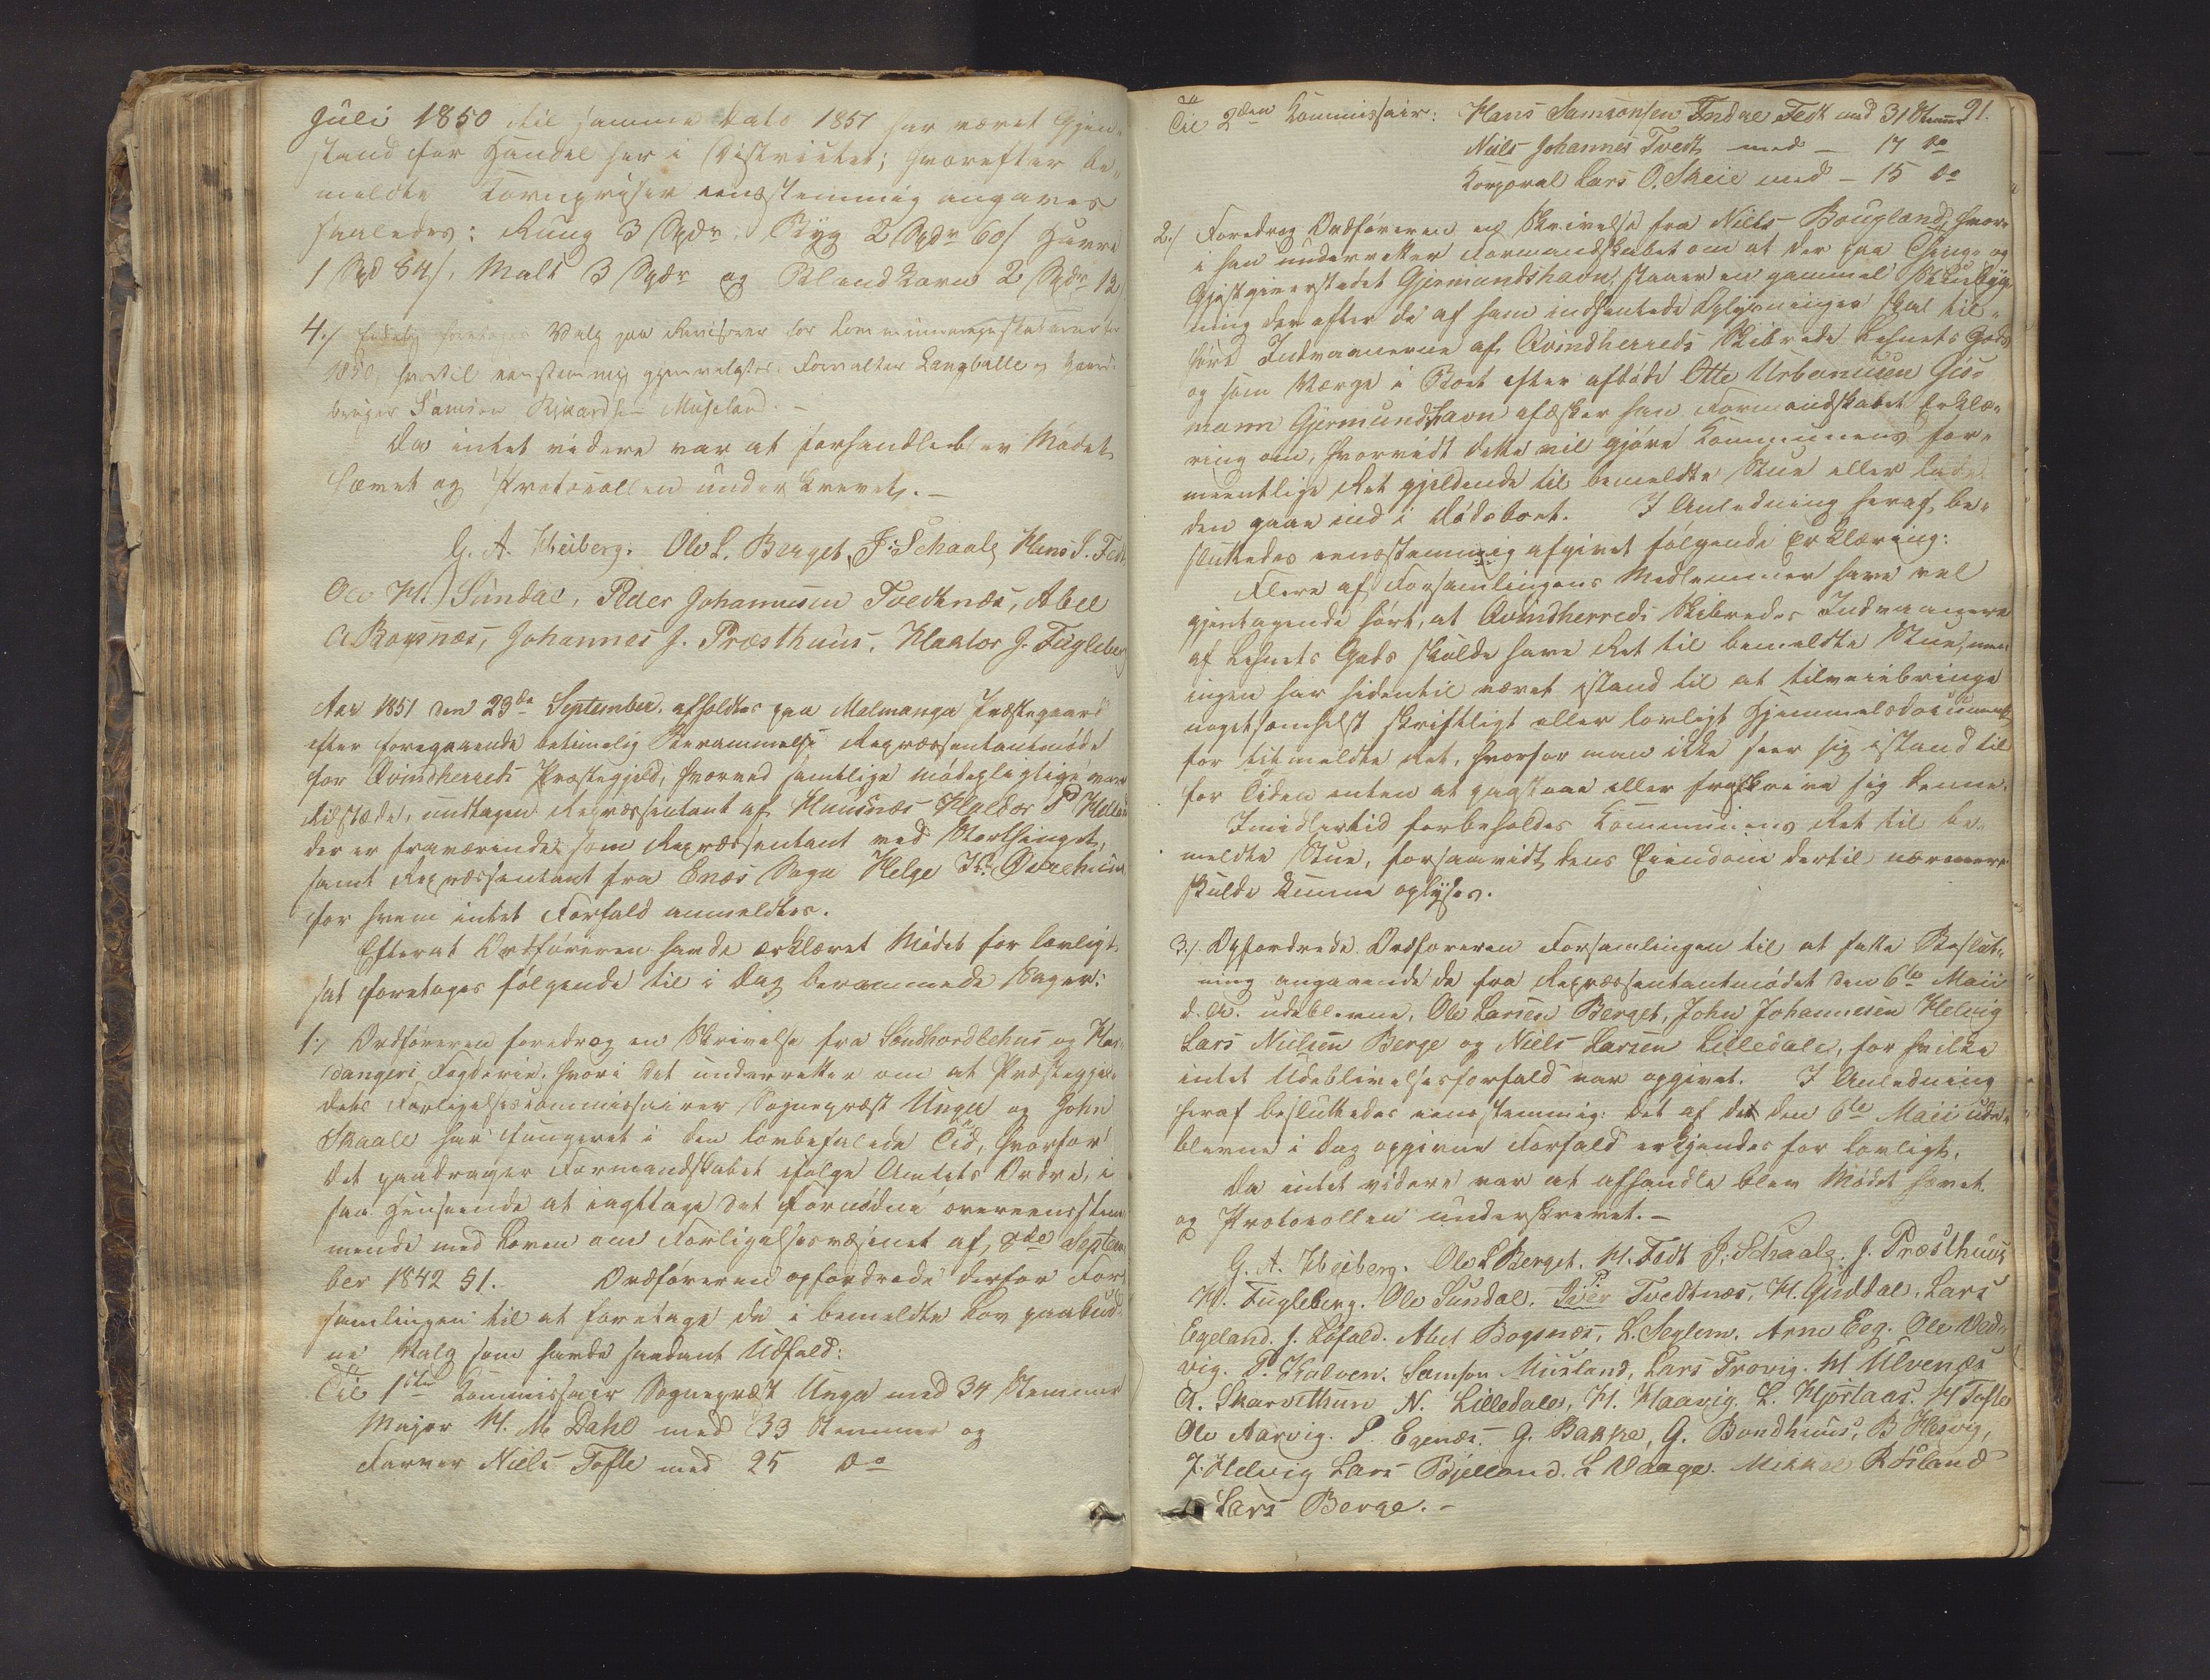 Juli 1850 til samme Dato 1851 har været Gjen-
stand for Handel her i Districtet; hvorefter be-
meldte Kornpriser eenstemmig angaves
saaledes: Rung 3 Spdr. Byg 2 Spdr 60 s Havre
1 Spd 84 s, Malt 3 Spdr og Blandkorn 2 Spdr 12
4./ Endelig foretoges Valg paa Revisorer for Kommuneregnskaberne for
1850, hvortil eenstemmig gjenvalgtes: Forvalter Langballe og Gaard-
bruger Samson Rikardsen Museland. -
Da intet videre var at forhandle blev Mødet
hævet og Protocollen underskrevet. -
G. A. Heiberg. Ole L. Berget, J. Schaaly Hans S. Fedt,
Ole H. Sundal, Peder Johannesen Tvedtnæs, Abel
A. Bogsnæs, Johannes J. Præsthuus, Haktor J. Fugleberg
Aar 1851 den 23de September, afholdtes paa Malmanger Præstegaard
efter foregaaende betimelig Berammelse Repræsentantmøde
for Qvindherreds Præstegjeld, hvorved samtlige mødepligtige vare
tilstæde, undtagen Repræsentant af Huusnæs Haldor P
der er fraværende som Repræsentant ved Storthinget,
samt Repræsentant fra Enæs Sogn Helge
for hvem intet Forfald anmeldtes.
Efterat Ordføreren havde erklæret Mødet for lovligt
sat foretoges følgende til i Dag berammede Sager:
1./ Ordføreren foredrog en Skrivelse fra Søndhordlehns og Har-
dangers Fogderie, hvori det underretter om at Præstegjel-
dets Forligelsescommissairer Sognepræst Unger og John
Skaale har fungeret i den lovbefalede Tid, hvorfor
det paadrager Formandskabet ifølge Amtets Ordre, i
saa Henseende at iagttage det Fornødne overeensstem-
mende med Loven om Forligelsesvæsenet af 8de Septem
ber 1842 §1. Ordføreren opfordrede derfor For-
samlingen til at foretage de i bemeldte Lov paabud-
ne Valg som havde saadant Udfald:
Til 1ste Kommissair Sognepræst Unger med 34 Stemmer
Major H. M. Dahl med 33 Stemmer og
Farver Niels Tofte med 25 Do
91.
Til 2den Kommissair: Hans Samsonsen Indre Fedt med 31 Stemmer
Niels Johannes Tvedt med - 17 Do
Korporal Lars O. Skeie med - 15 Do
2./ Foredrog Ordføreren en Skrivelse fra Niels Bougland, hvor-
i han underretter Formandskabet om at der paa Thing- og
Gjæstgiverstedet Gjermundshavn, staaer en gammel Stuebyg-
ning der efter de af ham indhentede Oplysninger skal til-
høre Indvaanerne af Qvindherreds Skibrede Lehnets Gods
og som Værge i Boet efter afdøde Otte Urbanusen Gis-
mann Gjermundshavn afæsker han Formandskabet Erklæ-
ring om, hvorvidt dette vil gjøre Kommunens for-
meentlige Ret gjeldende til bemeldte Stue eller lade
den gaae ind i Dødsboet. I Anledning heraf be-
sluttedes eenstemmig afgivet følgende Erklæring:
Flere af Forsamlingens Medlemmer have vel
gjentagende hørt, at Qvindherreds Skibredes Indvaanere
af Lehnets Gods skulde have Ret til bemeldte Stue, men
ingen har hidentil været istand til at tilveiebringe
nogetsomhelst skriftligt eller lovligt Hjemmelsdocument
for bemeldte Ret, hvorfor man ikke seer sig istand til
for Tiden enten at paastaae eller fraskrive sig denne.
Imidlertid forbeholdes Kommunens Ret til be-
meldte Stue, forsaavidt dens Eiendom dertil nærmere
skulde kunne oplyses.
3./ Opfordrede Ordføreren Forsamlingen til at fatte Beslut-
ning angaaende de fra Repræsentantmødet den 6te Maii
d. A. udeblevne, Ole Larsen Berget, John Johannesen Helvig
Lars Nielsen Berge og Niels Larsen Lilledale, for hvilke
intet Udeblivelsesforfald var opgivet. I Anledning
heraf besluttedes eenstemmig: det af det den 6te Maii ude-
blevne i Dag opgivne Forfald erkjendes for lovligt.
Da intet videre var at afhandle blev Mødet hævet
og Protocollen underskrevet. -
G. A. Heiberg. Ole L Berget. H. Fedt J. Schaalg. J. Præsthuus
H. Fugleberg. Ole Sundal. P. Tvedtnæs, H. Guddal, Lars
Eegeland. J. Løfald. Abel Bogsnæs, L. Seglem. Arne Eeg. Ole Ved-
vig. P. Halven. Samson Musland, Lars Trovig. H Ulvenæs
A. Skarvethun N. Lilledale, H. Haavig. L. Hjortaas. H Tofte
Ole Aarvig. P. Egenæs. G. Bakke, G. Bondhuus, B Hesvig,
J. Helvig Lars Pøjelland. L Vaage. Mikkel Røsland
Lars Berge. -